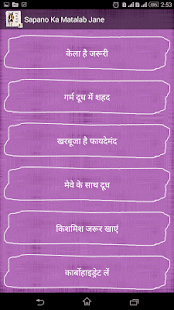 2:53
Sapano Ka Matalab Jane
केला है जरूरी
गर्म दूध में शहद
खरबूजा है फायदेमंद
मेवे के साथ दूध
किशमिश जरूर खाएं
कार्बोहाइड्रेट लें